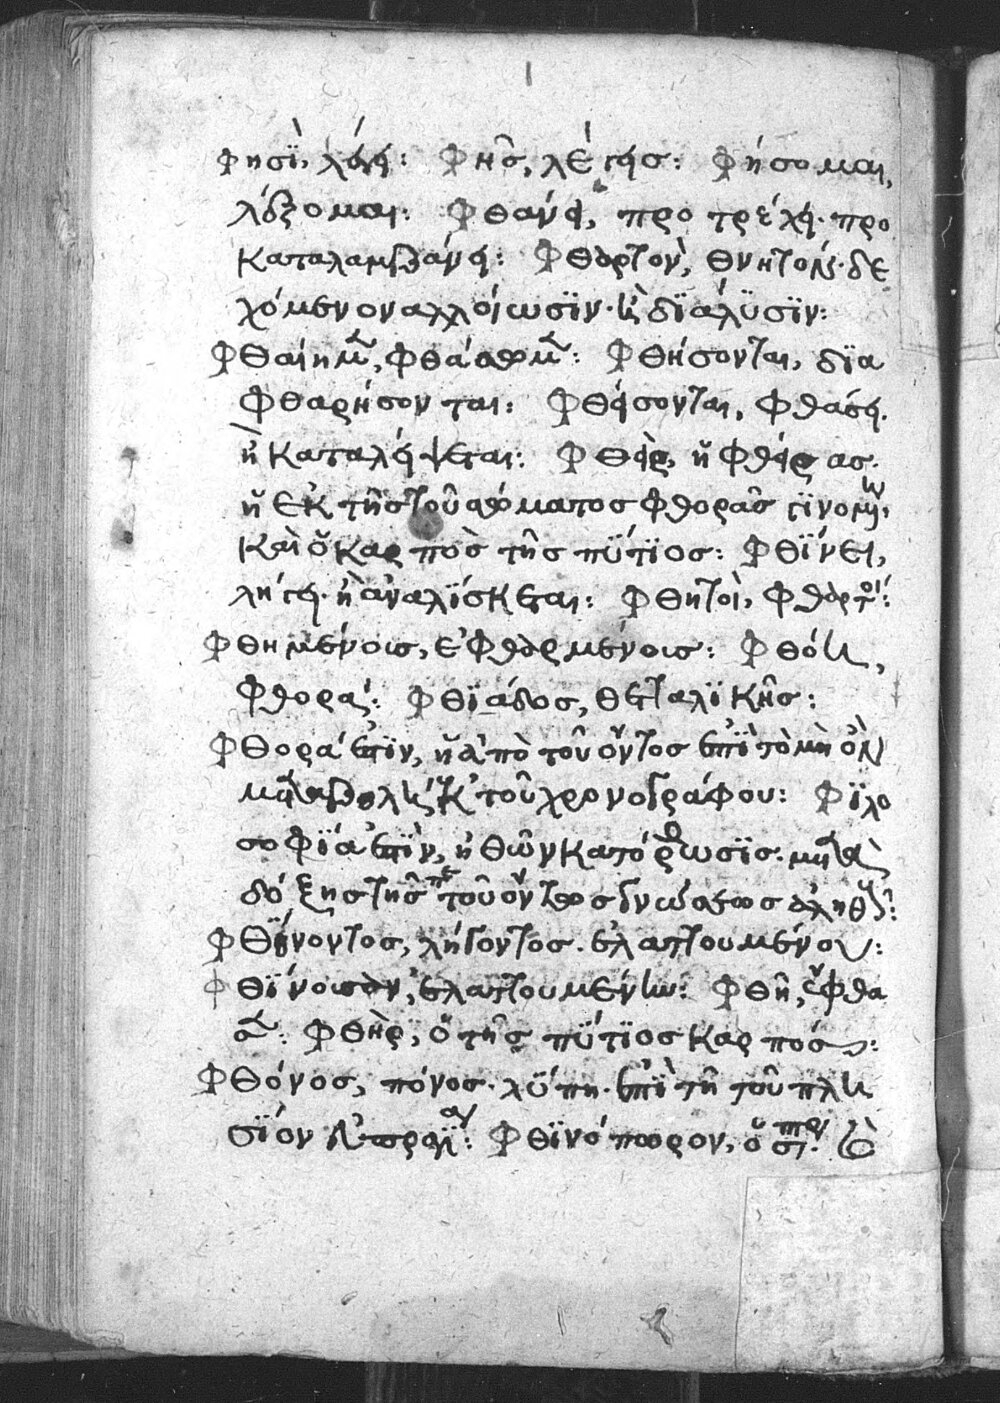 φησὶ, λέγει: φῂς, λέγεις: φήσομαι,
λέξομαι: φθάνει, προτρέχει· προ
καταλαμβάνει: φθαρτὸν, θνητὸν· δε
χόμενον ἀλλοίωσϊν· κὶ δϊάλϋσϊν:
φθαίημεν, φθάσωμεν: φθήσονται, δϊα
φθαρήσονται: φθείσονται, φθάσει.
ἢ καταλείψεται: φθεὶρ, ἢ φθείρας·
ἢ ἐκ τῆς τοῦ σώματος φθορᾶς γϊνομένων,
καὶ ὁ καρπὸς τῆς πϊτϊος: φθΐνει,
λήγει· ἢ ἀναλΐσκεται: φθητοὶ, φθαρτοί:
φθημένοις, ἐφθαρμένοις: φθόαι,
φθοραί: φθϊάδος, θετταλϊκῆς:
φθορά ἐστϊν, ἡ ἀπὸ τοῦ ὄντος ἐπῒ τὸ μὴ ὂν
μεταβολὴ ἐκ τοῦ χρονογράφου: φϊλο
σοφΐα ἐστῒν, ἠθῶν κατόρθωσϊς· μετὰ
δόξης τῆς περὶ τοῦ ὄντως γνώσεως ἀληθοῦς:
φθΐνοντος, λήγοντος· ἐλαττουμένου:
φθϊνουσῶν, ἐλαττουμένων: φθῆ, ἔφθα
σεν: φθεὴρ, ὁ τῆς πΐτϊος καρπός:
φθόνος, πόνος· λύπη· ἐπῒ τῆ τοῦ πλη
σΐον εὐπραγΐα: φθϊνόπωρον, ὅπερ ἐστὶ